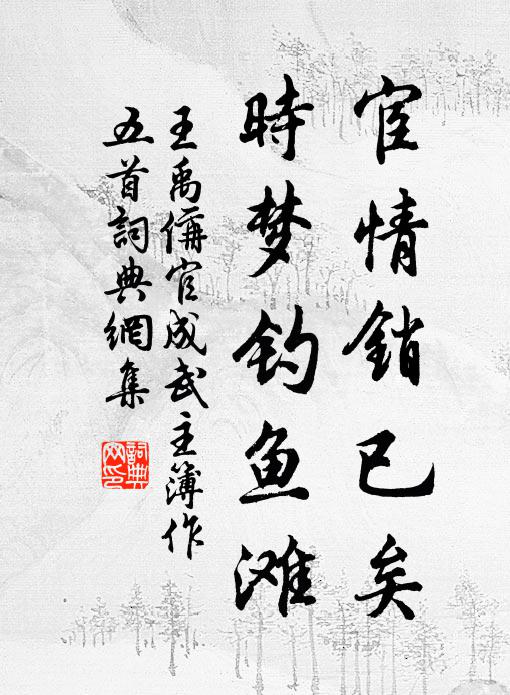 宦情銷已矣
時梦钓鱼滩
王禹偁官成武主簿作
五首詞典網集
詞典网印